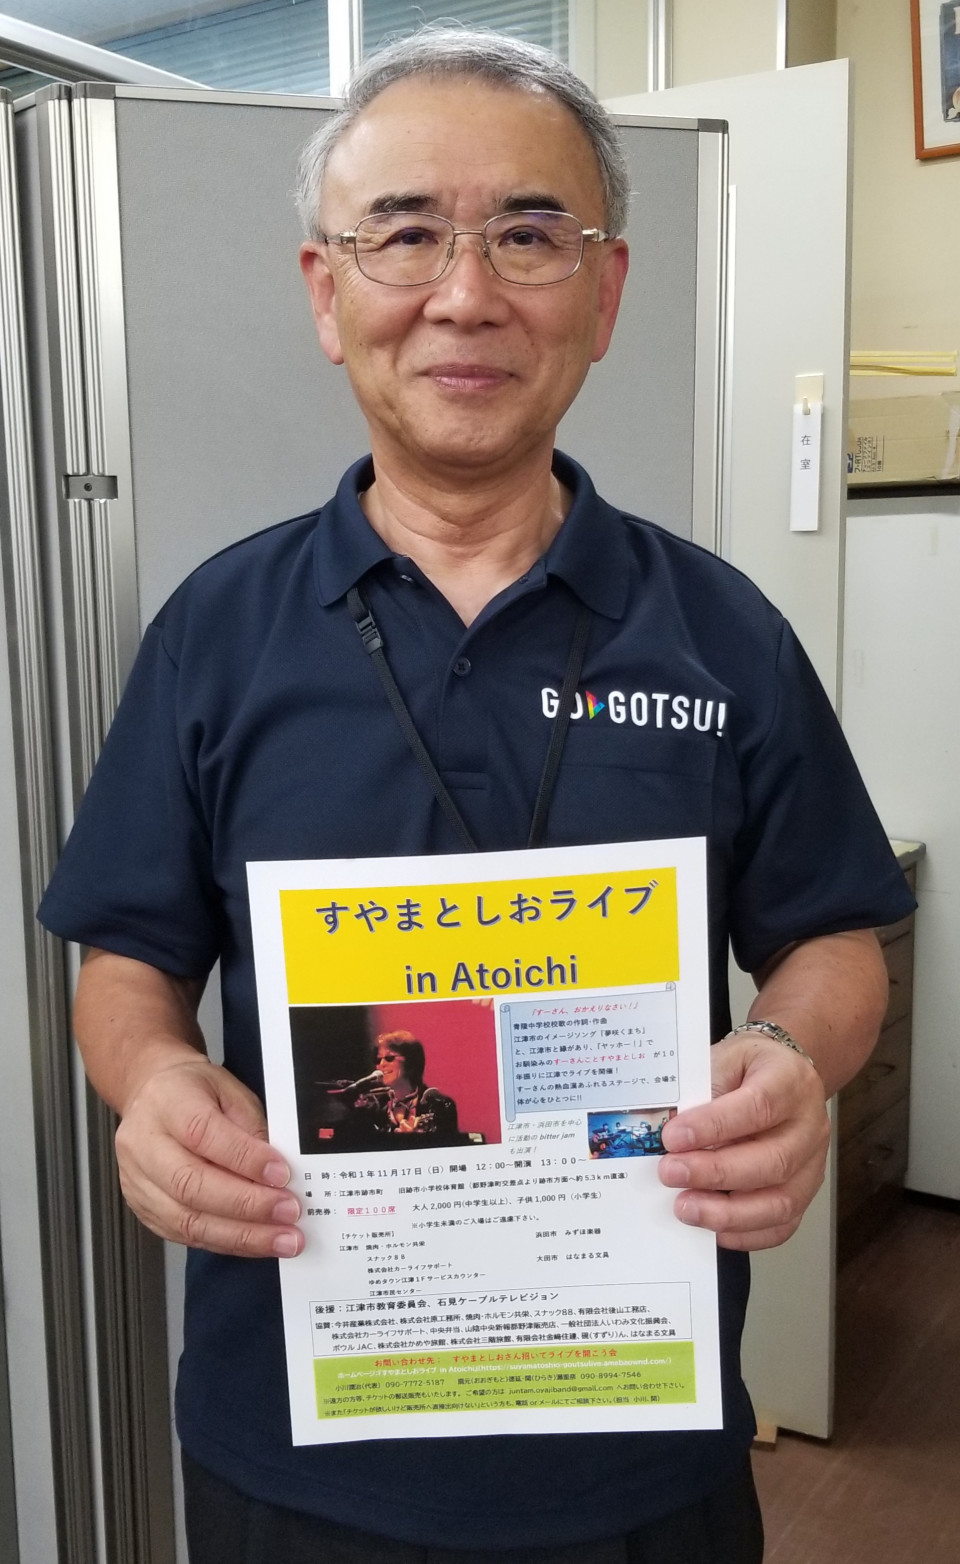 在室
GO GOTSU!
すやまとしおライブ
in Atoichi
『すーさん、おかえりなさい！』
青陵中学校校歌の作詞・作曲
江津市のイメージソング『夢咲くまち』
と、江津市と縁があり、『ヤッホー！』で
お馴染みのすーさんことすやまとしお が１０
年振りに江津でライブを開催！
すーさんの熱血漢あふれるステージで、会場全
体が心をひとつに!!
江津市・浜田市を中心
に活動の bitter jam
も出演！
日 時：令和１年１１月１７日（日）開場 １２：００～開演 １３：００～
場 所：江津市跡市町 旧跡市小学校体育館（都野津町交差点より跡市方面へ約5.3ｋｍ直進）
前売券： 限定１００席 大人2,000円(中学生以上)、子供1,000円（小学生）
※小学生未満のご入場はご遠慮下さい。
【チケット販売所】
江津市 焼肉・ホルモン共栄
スナック８８
株式会社カーライフサポート
ゆめタウン江津１Ｆサービスカウンター
江津市民センター
浜田市 みずほ楽器
大田市 はなまる文具
後援：江津市教育委員会、石見ケーブルテレビジョン
協賛：今井産業株式会社、株式会社原工務所、焼肉・ホルモン共栄、スナック88、有限会社後山工務店、
株式会社カーライフサポート、中央弁当、山陰中央新報都野津販売店、一般社団法人いわみ文化振興会、
ボウルJAC、株式会社かめや旅館、株式会社三階旅館、有限会社金崎住建、硯(すずり)ん、はなまる文具
お問い合わせ先： すやまとしおさん招いてライブを開こう会
ホームページ:すやまとしおライブ in Atoichi
(代表) 090-7772-5187 090-8994-7546
※遠方の方等、チケットの郵送販売もいたします。ご希望の方は juntam.oyajiband@gmail.com へお問い合わせ下さい。
※また「チケットが欲しいけど販売所へ直接出向けない」という方も、電話 or メールにてご相談下さい。(担当 小川、関)